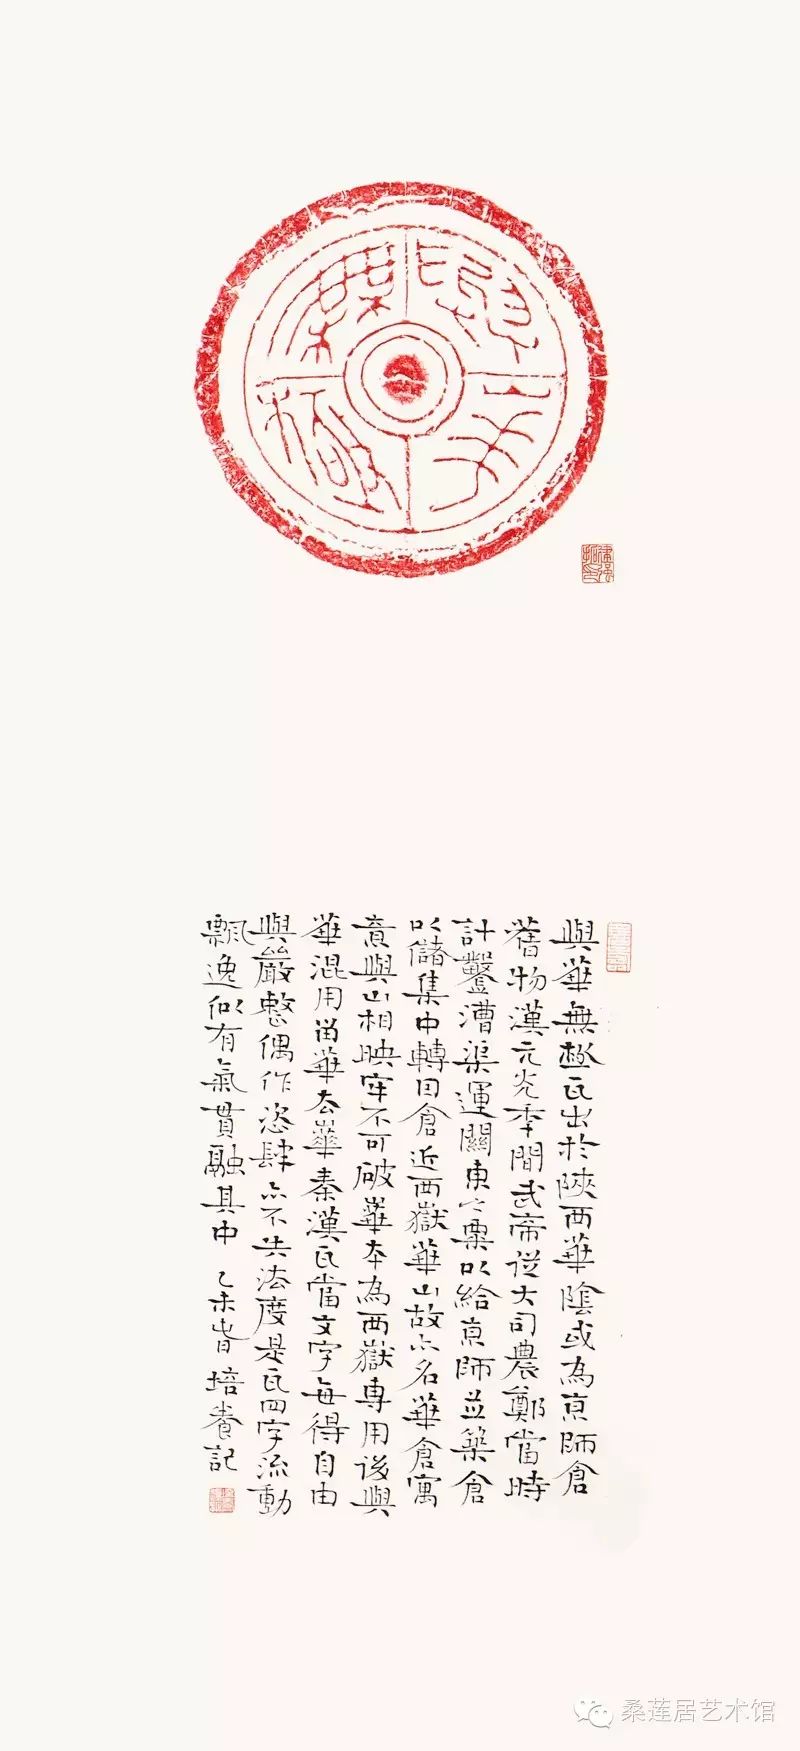 與華
無極
與華無極瓦出於陝西華陰或為京師倉
舊物漢元光年間武帝從大司農鄭當時
計鑿漕渠運關東之粟以給京師並築倉
以儲集中轉因倉近西嶽華山故亦名華倉寓
意與山相映牢不可破崋本為西嶽專用後與
華混用留華去崋秦漢瓦當文字每得自由
與嚴整偶作恣肆亦不失法度是瓦四字流動
飄逸似有氣貫融其中 乙未春培養記
桑莲居艺术馆